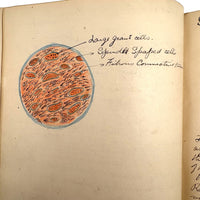 Large giant cells.
Spindle Shaped cells
Fibrous Connective